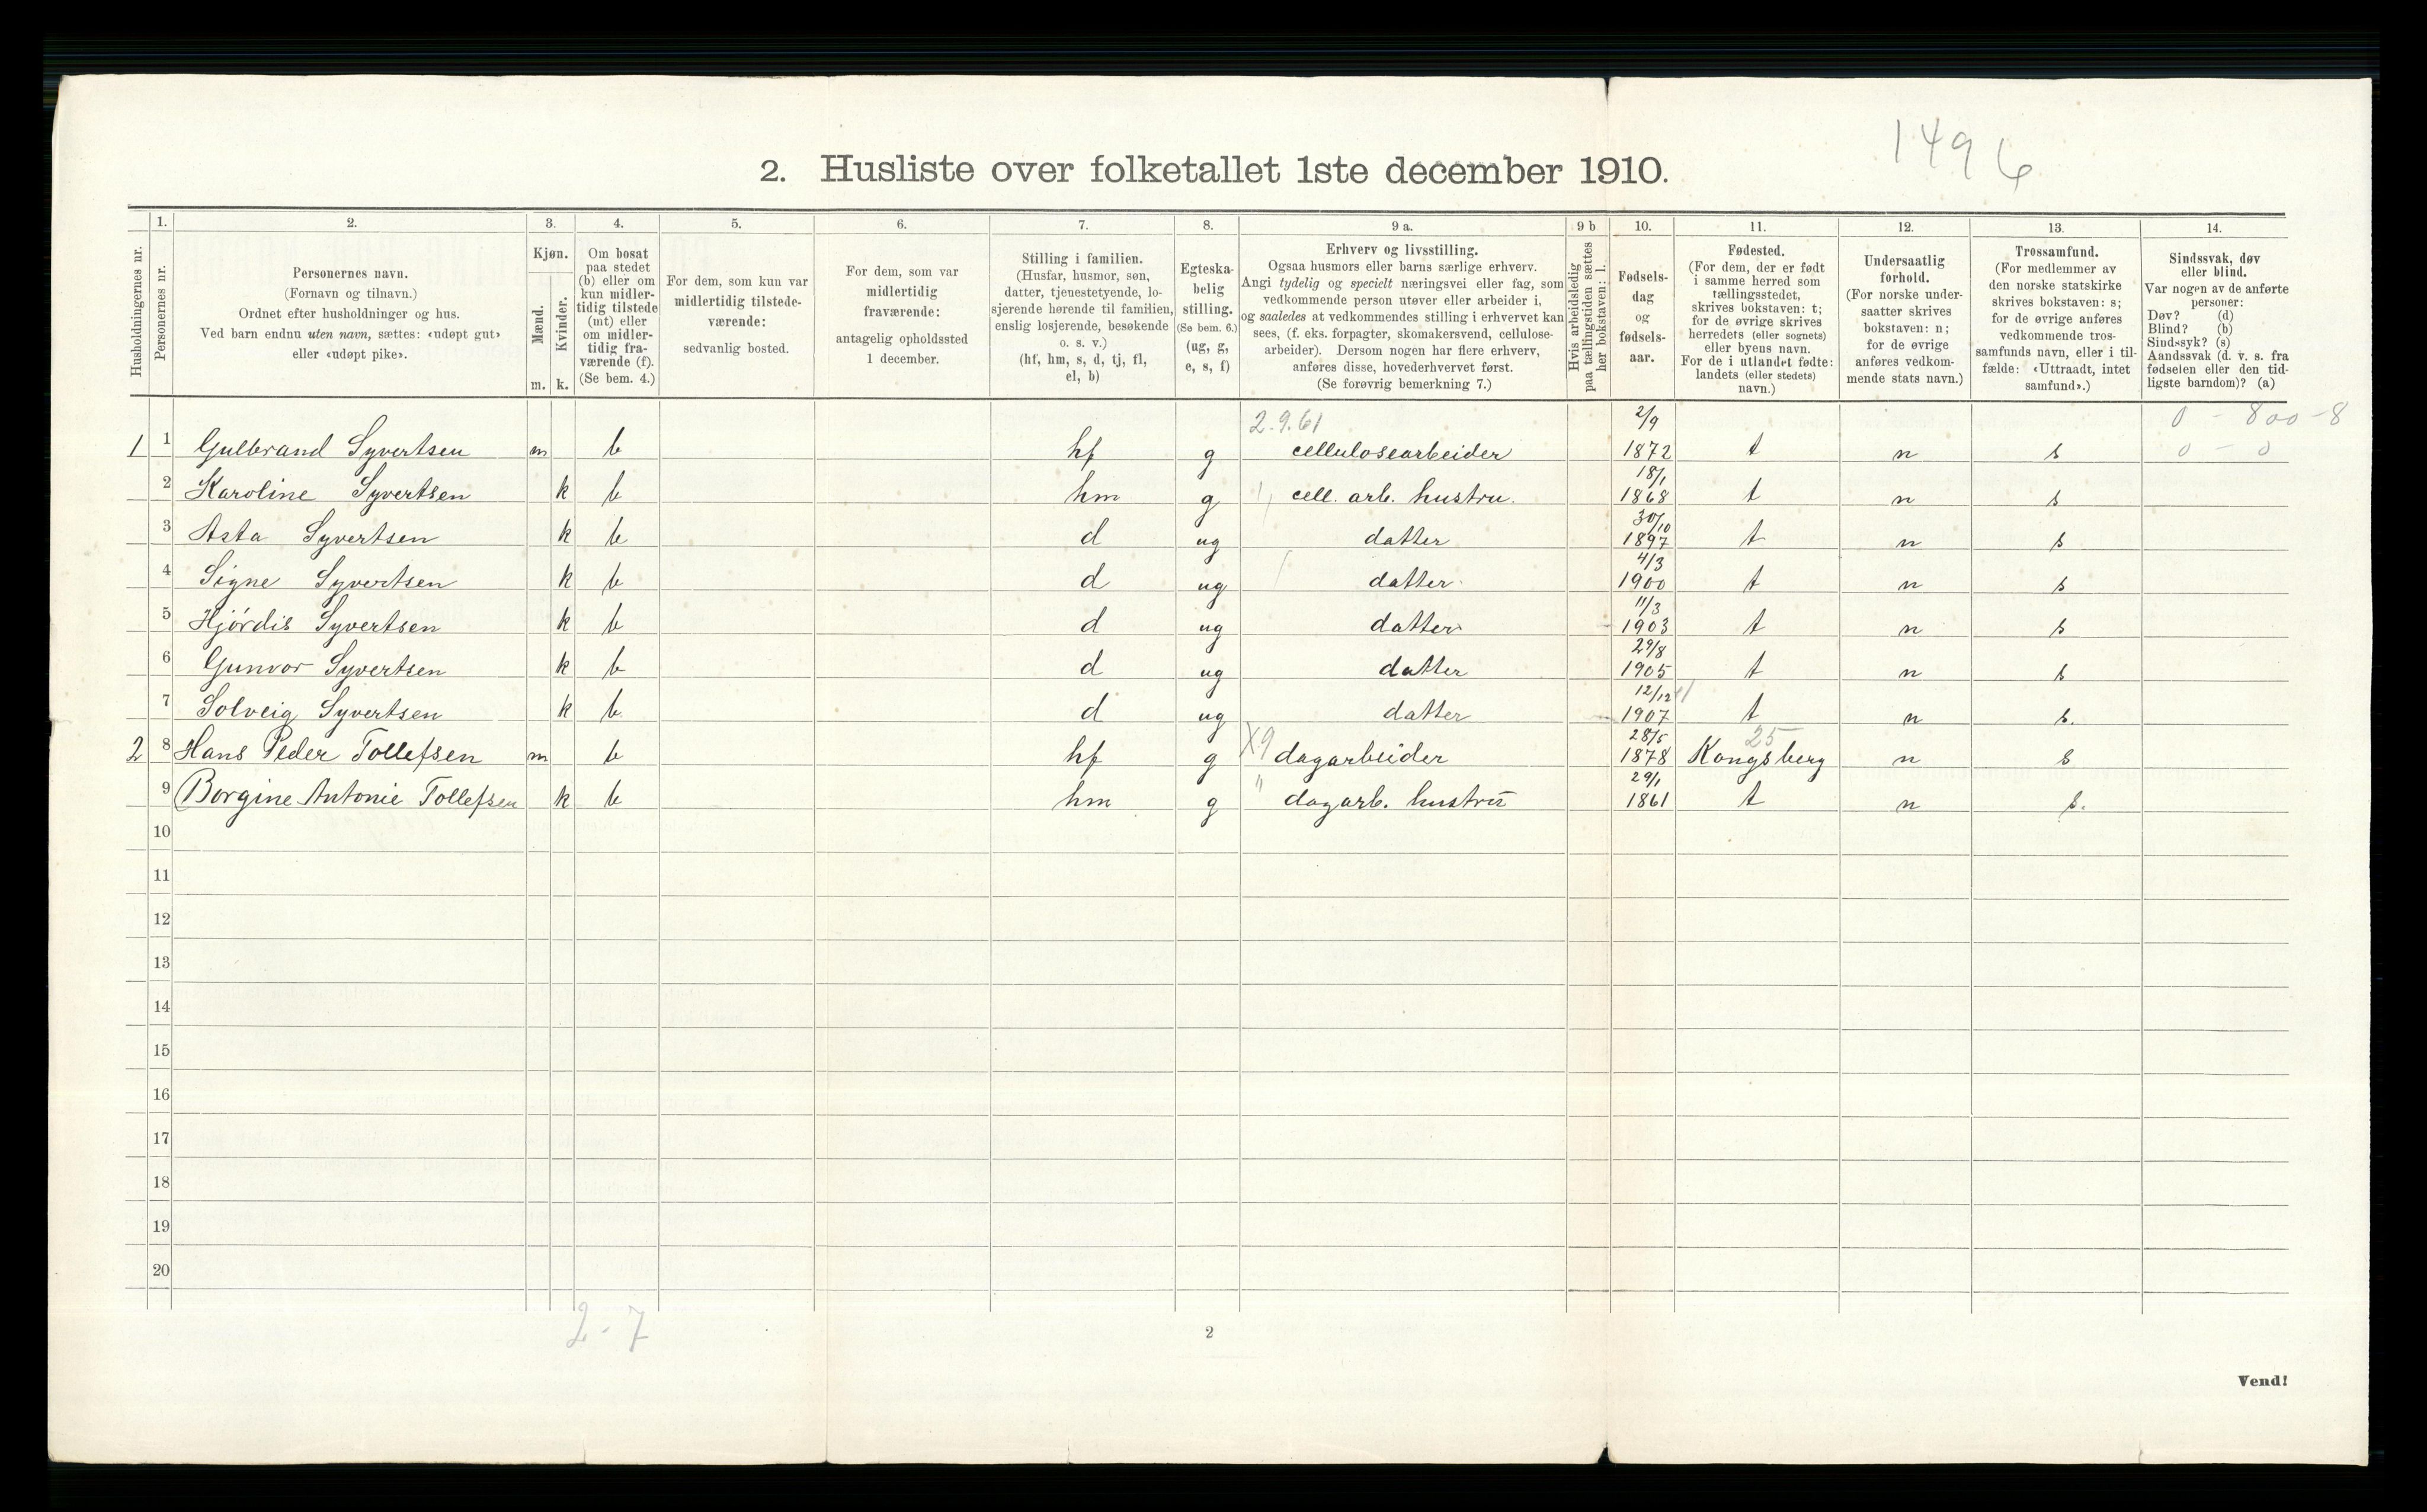 1496
2. Husliste over folketallet 1ste december 1910.
Husholdningernes nr.
1.
Personernes nr.
2.
Personernes navn.
(Fornavn og tilnavn.)
Ordnet efter husholdninger og hus.
Ved barn endnu uten navn, sættes: «udøpt gut»
eller «udøpt pike».
3.
Kjøn.
Mænd.
Kvinder.
m. k.
4.
Om bosat
paa stedet
(b) eller om
kun midler-
tidig tilstede
(mt) eller
om midler-
tidig fra-
værende (f).
(Se bem. 4.)
5.
For dem, som kun var
midlertidig tilstede-
værende:
sedvanlig bosted.
6.
For dem, som var
midlertidig
fraværende:
antagelig opholdssted
1 december.
7.
Stilling i familien.
(Husfar, husmor, søn,
datter, tjenestetyende, lo-
sjerende hørende til familien,
enslig losjerende, besøkende
o. s. v.)
(hf, hm, s, d, tj, fl,
el, b)
8.
Egteska-
belig
stilling.
(Se bem. 6.)
(ug, g,
e, s, f)
9 a.
Erhverv og livsstilling.
Ogsaa husmors eller barns særlige erhverv.
Angi tydelig og specielt næringsvei eller fag, som
vedkommende person utøver eller arbeider i,
og saaledes at vedkommendes stilling i erhvervet kan
sees, (f. eks. forpagter, skomakersvend, cellulose-
arbeider). Dersom nogen har flere erhverv,
anføres disse, hovederhvervet først.
(Se forøvrig bemerkning 7.)
9 b
Hvis arbeidsledig
paa tællingstiden sættes
her bokstaven: l.
10.
Fødsels-
dag
og
fødsels-
aar.
11.
Fødested.
(For dem, der er født
i samme herred som
tællingsstedet,
skrives bokstaven: t;
for de øvrige skrives
herredets (eller sognets)
eller byens navn.
For de i utlandet fødte:
landets (eller stedets)
navn.)
12.
Undersaatlig
forhold.
(For norske under-
saatter skrives
bokstaven: n;
for de øvrige
anføres vedkom-
mende stats navn.)
13.
Trossamfund.
(For medlemmer av
den norske statskirke
skrives bokstaven: s;
for de øvrige anføres
vedkommende tros-
samfunds navn, eller i til-
fælde: «Uttraadt, intet
samfund».)
14.
Sindssvak, døv
eller blind.
Var nogen av de anførte
personer:
Døv? (d)
Blind? (b)
Sindssyk? (s)
Aandssvak (d. v. s. fra
fødselen eller den tid-
ligste barndom)? (a)
2.9.61 2/9 0 - 800-8
1 1 Gulbrand Syvertsen m b hf g cellulosearbeider 1872 t n s 0 - 0
2 Karoline Syvertsen k b hm g cell. arb. hustru. 18/1 1868 t n s
3 Asta Syvertsen k b d ug datter 30/10 1897 t n s
4 Signe Syvertsen k b d ug datter 4/3 1900 t n s
5 Hjórdis Syvertsen k b d ug datter 11/3 1903 t n s
6 Gunvor Syvertsen k b d ug datter 29/8 1905 t n s
7 Solveig Syvertsen k b d ug datter 12/12 1907 t n s.
2 8 Hans Peder Tollefsen m b hf g X9 dagarbeider 28/5 1878 25 Kongsberg n s
9 Borgine Antonie Tollefsen k b hm g " dagarb. hustru 29/1 1861 t n s.
10
11
12
13
14
15
16
17
18
19
20
2-7
2
Vend!